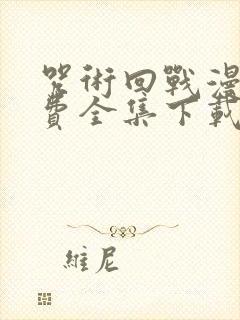 咒術回戰漫
費全集下載
維尼